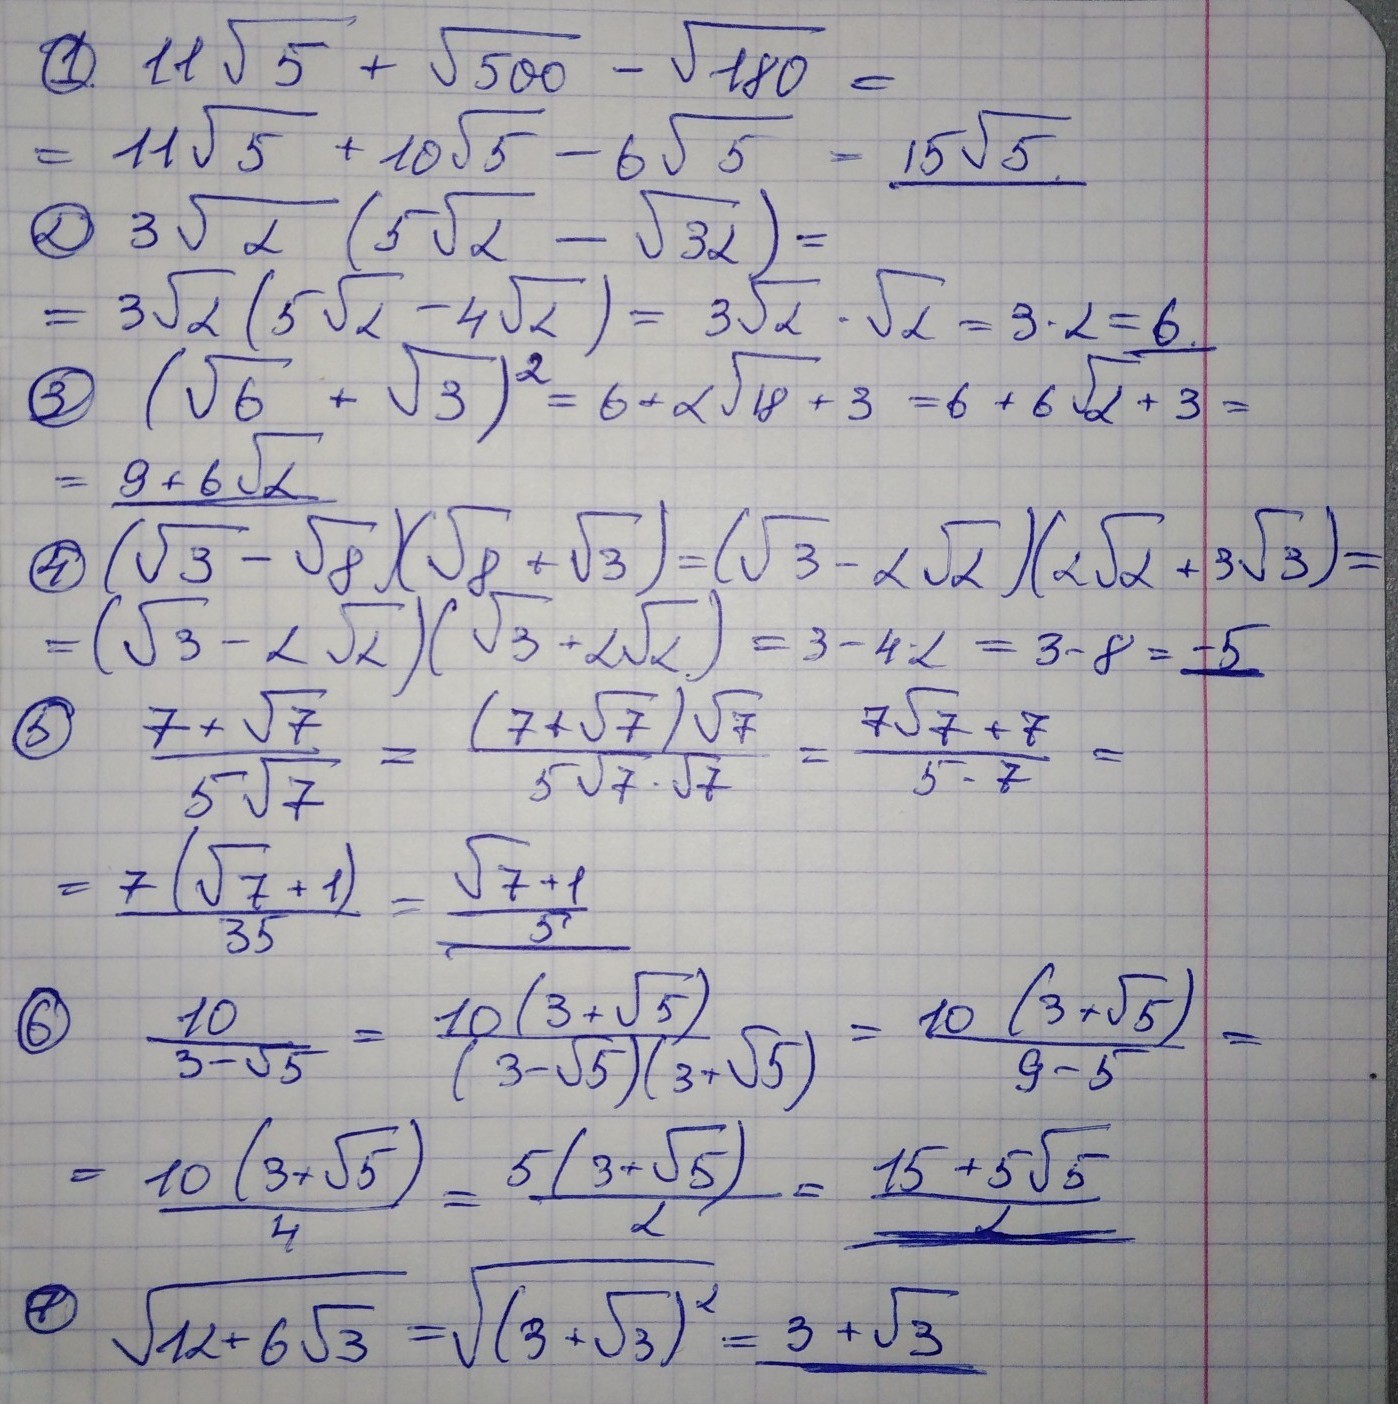 ① 11√5 + √500 - √180 =
= 11√5 + 10√5 - 6√5 = 15√5
② 3√2 (5√2 - √32) =
= 3√2 (5√2 - 4√2) = 3√2 · √2 = 3·2 = 6
③ (√6 + √3)² = 6 + 2√18 + 3 = 6 + 6√2 + 3 =
= 9 + 6√2
④ (√3 - √8)(√8 + √3) = (√3 - 2√2)(2√2 + 3√3) =
= (√3 - 2√2)(√3 + 2√2) = 3 - 4·2 = 3 - 8 = -5
⑤ (7 + √7)/(5√7) = ((7 + √7)√7)/(5√7 · √7) = (7√7 + 7)/(5 · 7) =
= (7(√7 + 1))/35 = (√7 + 1)/5
⑥ 10/(3 - √5) = (10(3 + √5))/((3 - √5)(3 + √5)) = (10(3 + √5))/(9 - 5) =
= (10(3 + √5))/4 = (5(3 + √5))/2 = (15 + 5√5)/2
⑦ √(12 + 6√3) = √((3 + √3)²) = 3 + √3